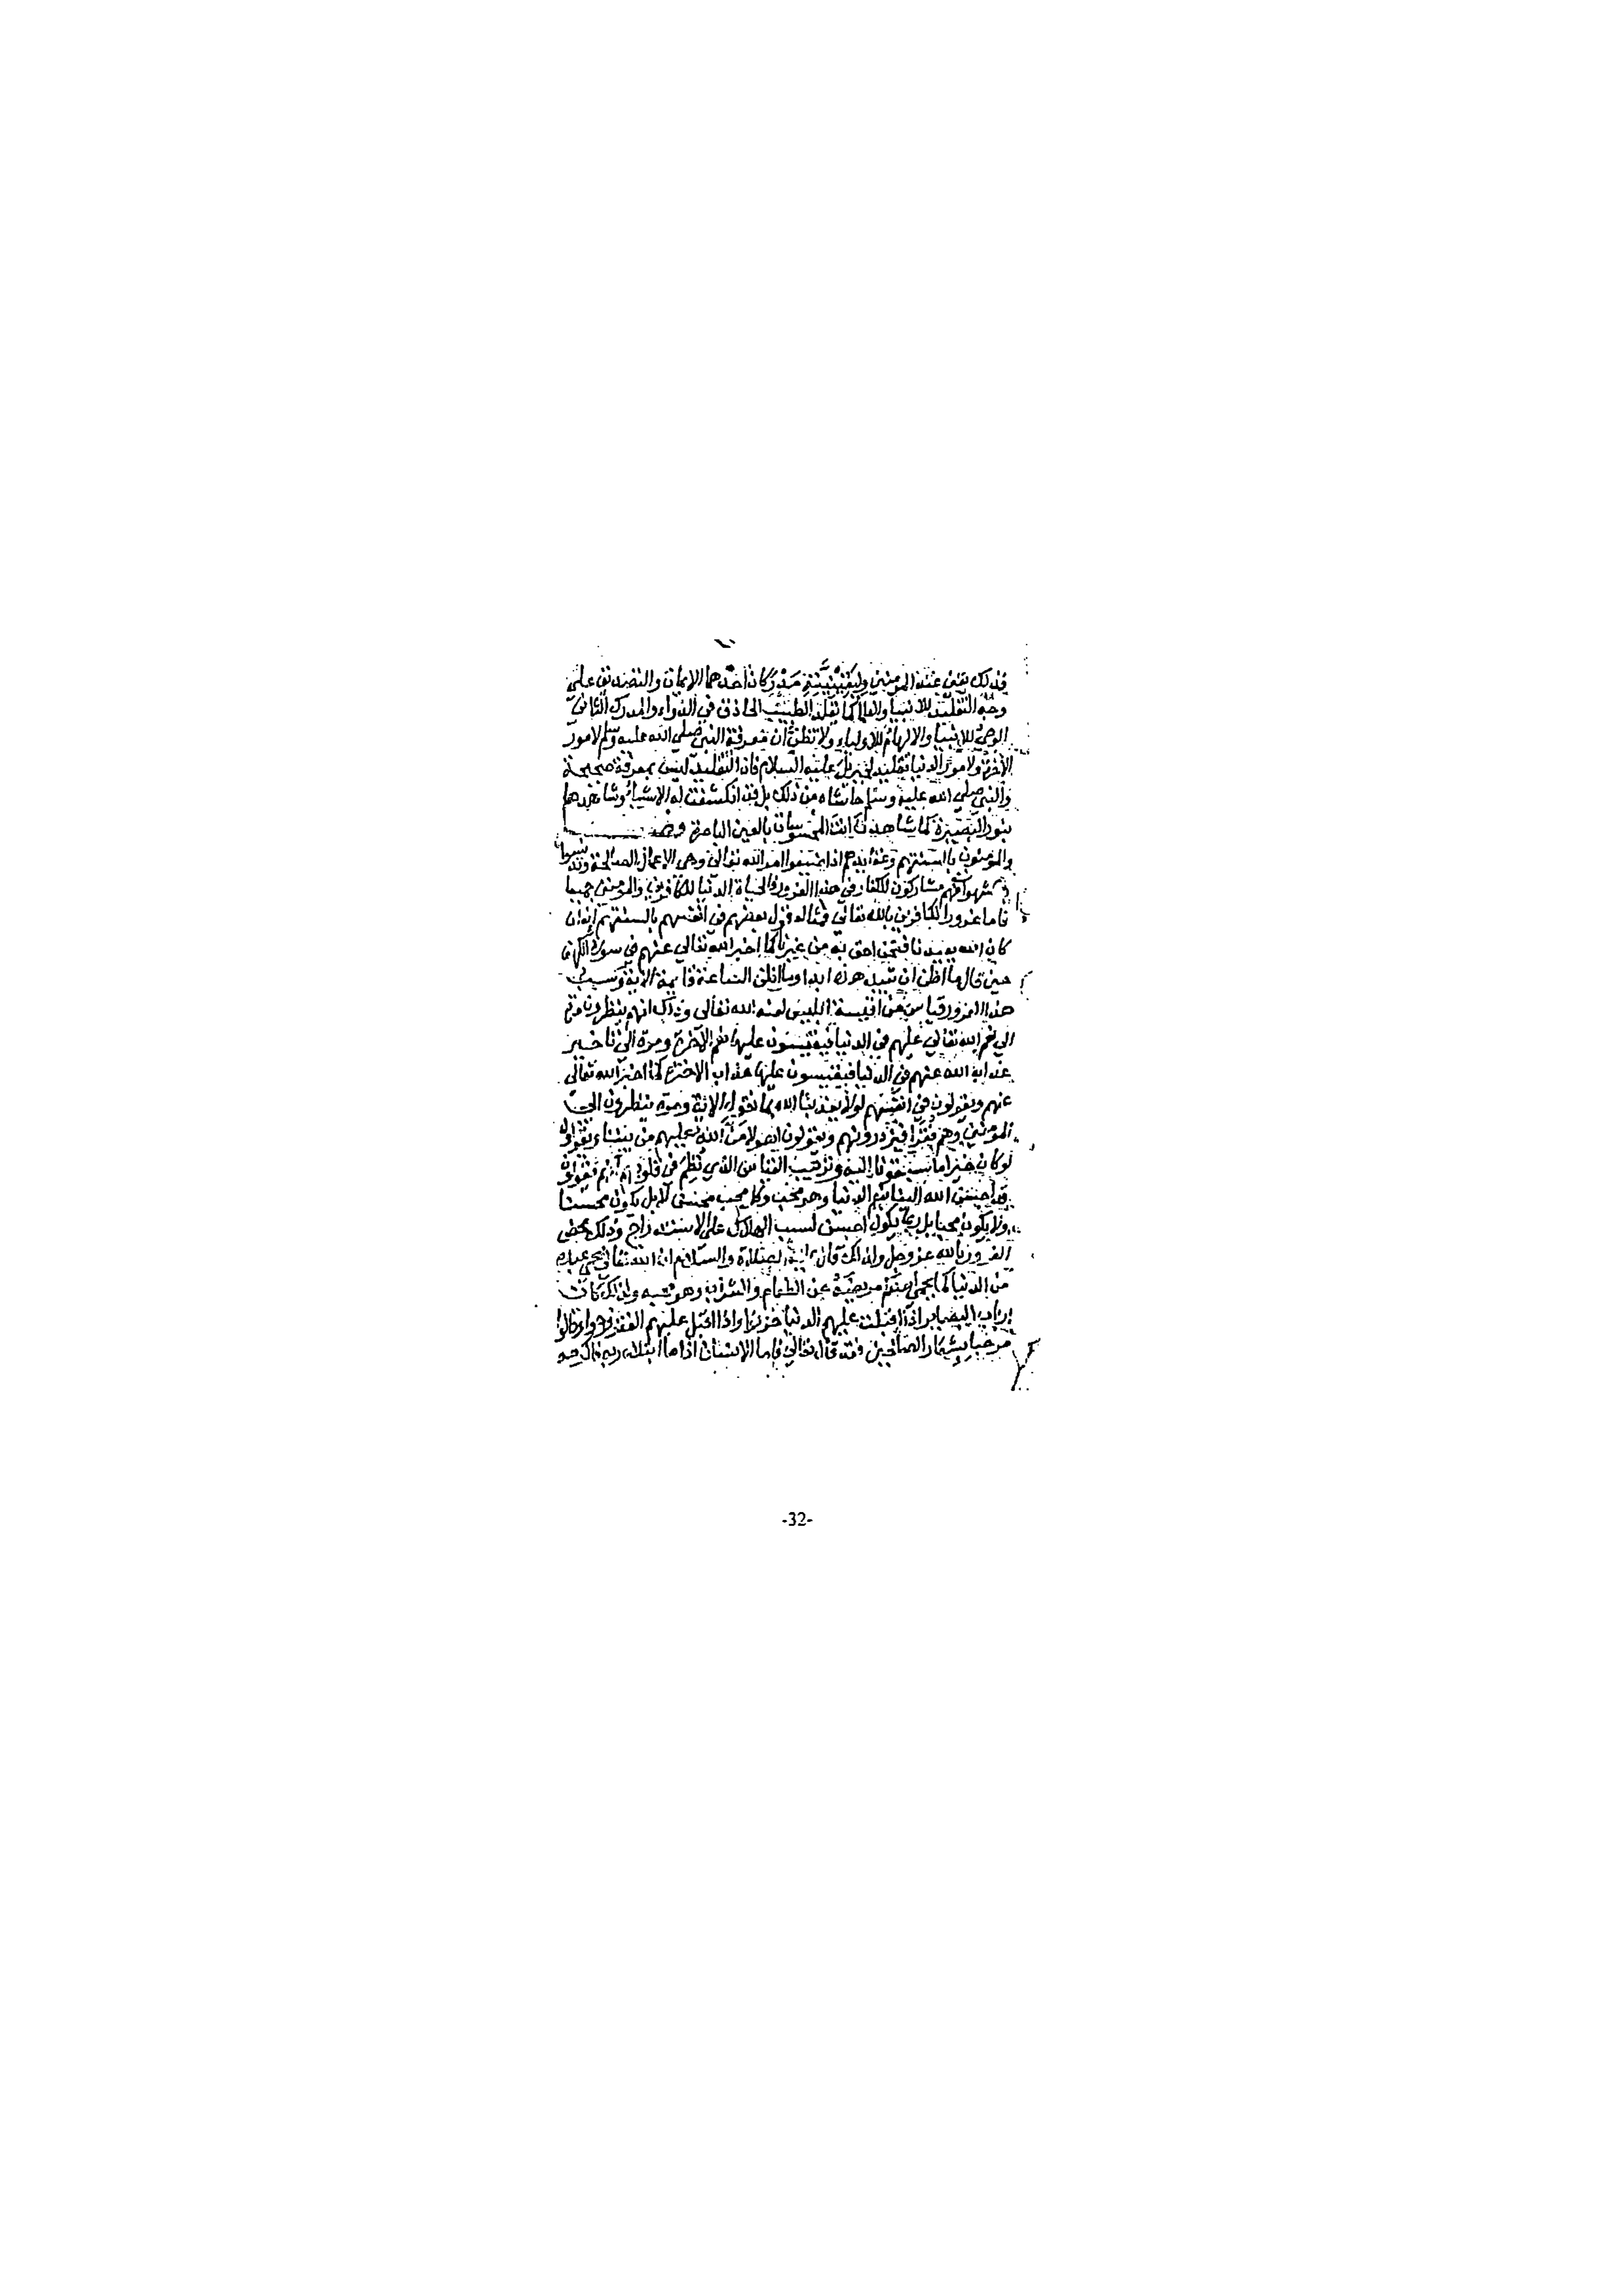 فذلك يقين عند المؤمنين وليقينيته مدركان احدهما الايمان والتصديق على
وجه التقليد للانبياء والعلماء كما تقلد الطبيب الحاذق في الدواء والمدرك الثاني
الوحي للانبيا والالهام للاولياء ولا تظن ان معرفة النبي صلى الله عليه وسلم لامور
الاخرة ولامور الدنيا تقليد لجبريل عليه السلام فان التقليد ليس بمعرفة صحيحة
والنبي صلى الله عليه وسلم حاشاه من ذلك بل قد انكشفت له الاشياء وشاهدها
بنور البصيرة كما شاهدت انت المحسوسات بالعين الباصرة فصـــل
والمؤمنون بالسنتهم وعقايدهم اذا ضيعوا امر الله تعالى وهي الاعمال الصالحة وتدنسوا
بالشهوات فهم مشاركون للكفار في هذا الغرور فالحياة الدنيا للكافرين والمؤمنين جميعا
فاما غرور الكافرين بالله تعالى فمثاله قول بعضهم في انفسهم بالسنتهم انه ان
كان الله يعيدنا فنحن احق به من غيرنا كما اخبر الله تعالى عنهم في سورة الكهف
حين قال ما اظن ان تبيد هذه ابدا وما اظن الساعة قايمة الاية وسبب
هذا الغرور قياس من اقيسة ابليس لعنه الله تعالى وذلك انهم ينظرون مرة
الى نعم الله تعالى عليهم في الدنيا فيقيسون عليها نعم الاخرة ومرة الى تاخير
عذاب الله عنهم في الدنيا فيقيسون عليها عذاب الاخرة كما اخبر الله تعالى
عنهم ويقولون في انفسهم لولا يعذبنا الله بما نقول الاية ومرة ينظرون الى
المؤمنين وهم فقرا فيزدرونهم ويقولون اهولا من الله عليهم من بيننا ويقولون
لو كان خيرا ما سبقونا اليه وترتيب القياس الذي نظم في قلوبهم انهم يقولون
قد احسن الله الينا بنعم الدنيا وهو محب وكل محب محسن لا بل يكون محسنا
ولا يكون محبا بل ربما يكون احسن لسبب الهلاك على الاستدراج وذلك محض
الغرور بالله عز وجل ولذلك قال عليه الصلاة والسلام ان الله تعالى يحمي عبده
من الدنيا كما يحمي احدكم مريضه عن الطعام والشراب وهو يحبه ولذلك كان
ارباب البصاير اذا اقبلت عليهم الدنيا حزنوا واذا اقبل عليهم الفقر فرحوا وقالوا
مرحبا بشعار الصالحين وقد قال تعالى فاما الانسان اذا ما ابتلاه ربه فاكرمه
-32-